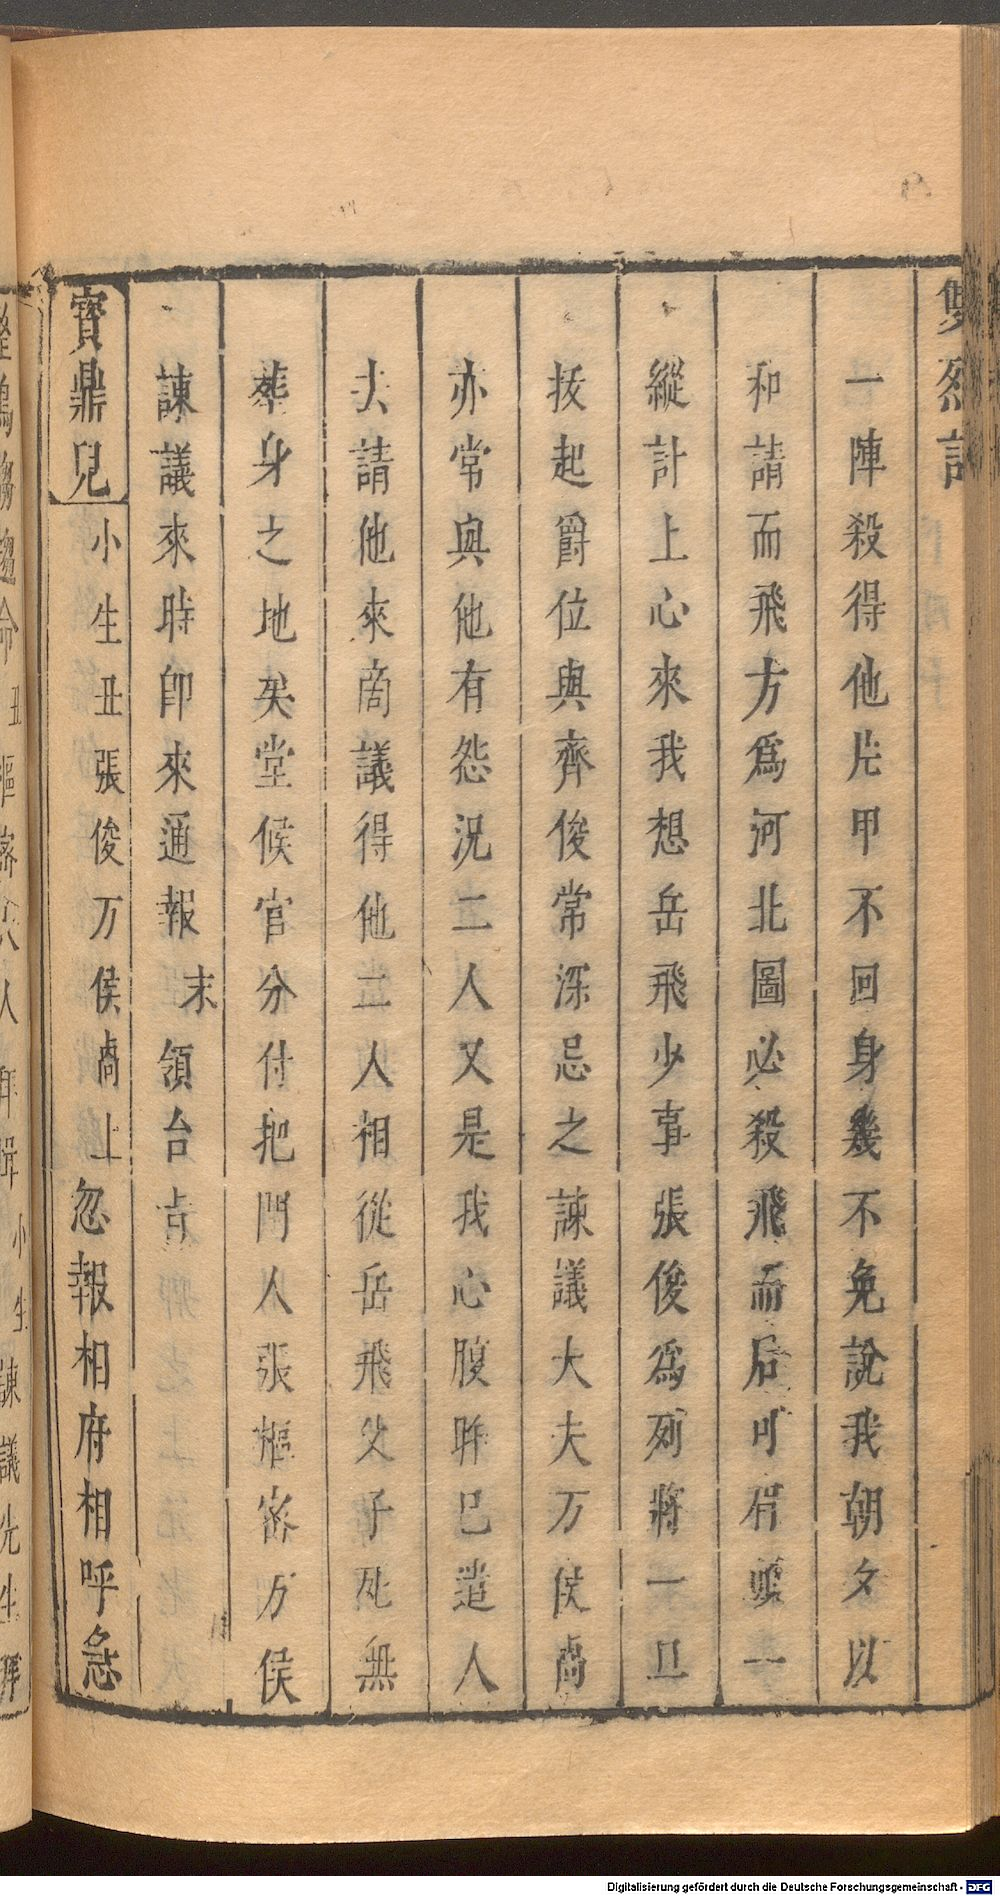 雙烈記
一陣殺得他片甲不回身幾不免說我朝夕以
和請而飛方爲河北圖必殺飛而后可有頭一
縱計上心來我想岳飛少事張俊爲列將一旦
拔起爵位與齊俊常深忌之諫議大夫万俟卨
亦常與他有怨況二人又是我心腹昨已遣人
去請他來商議得他二人相從岳飛父子死無
葬身之地矣堂候官分付把門人張樞密万俟
諫議來時卽來通報末領台旨
寶鼎兒小生丑張俊万俟卨上忽報相府相呼急
命丑樞密
人
小生諫議先生拜
Digitalisierung gefördert durch die Deutsche Forschungsgemeinschaft - DFG